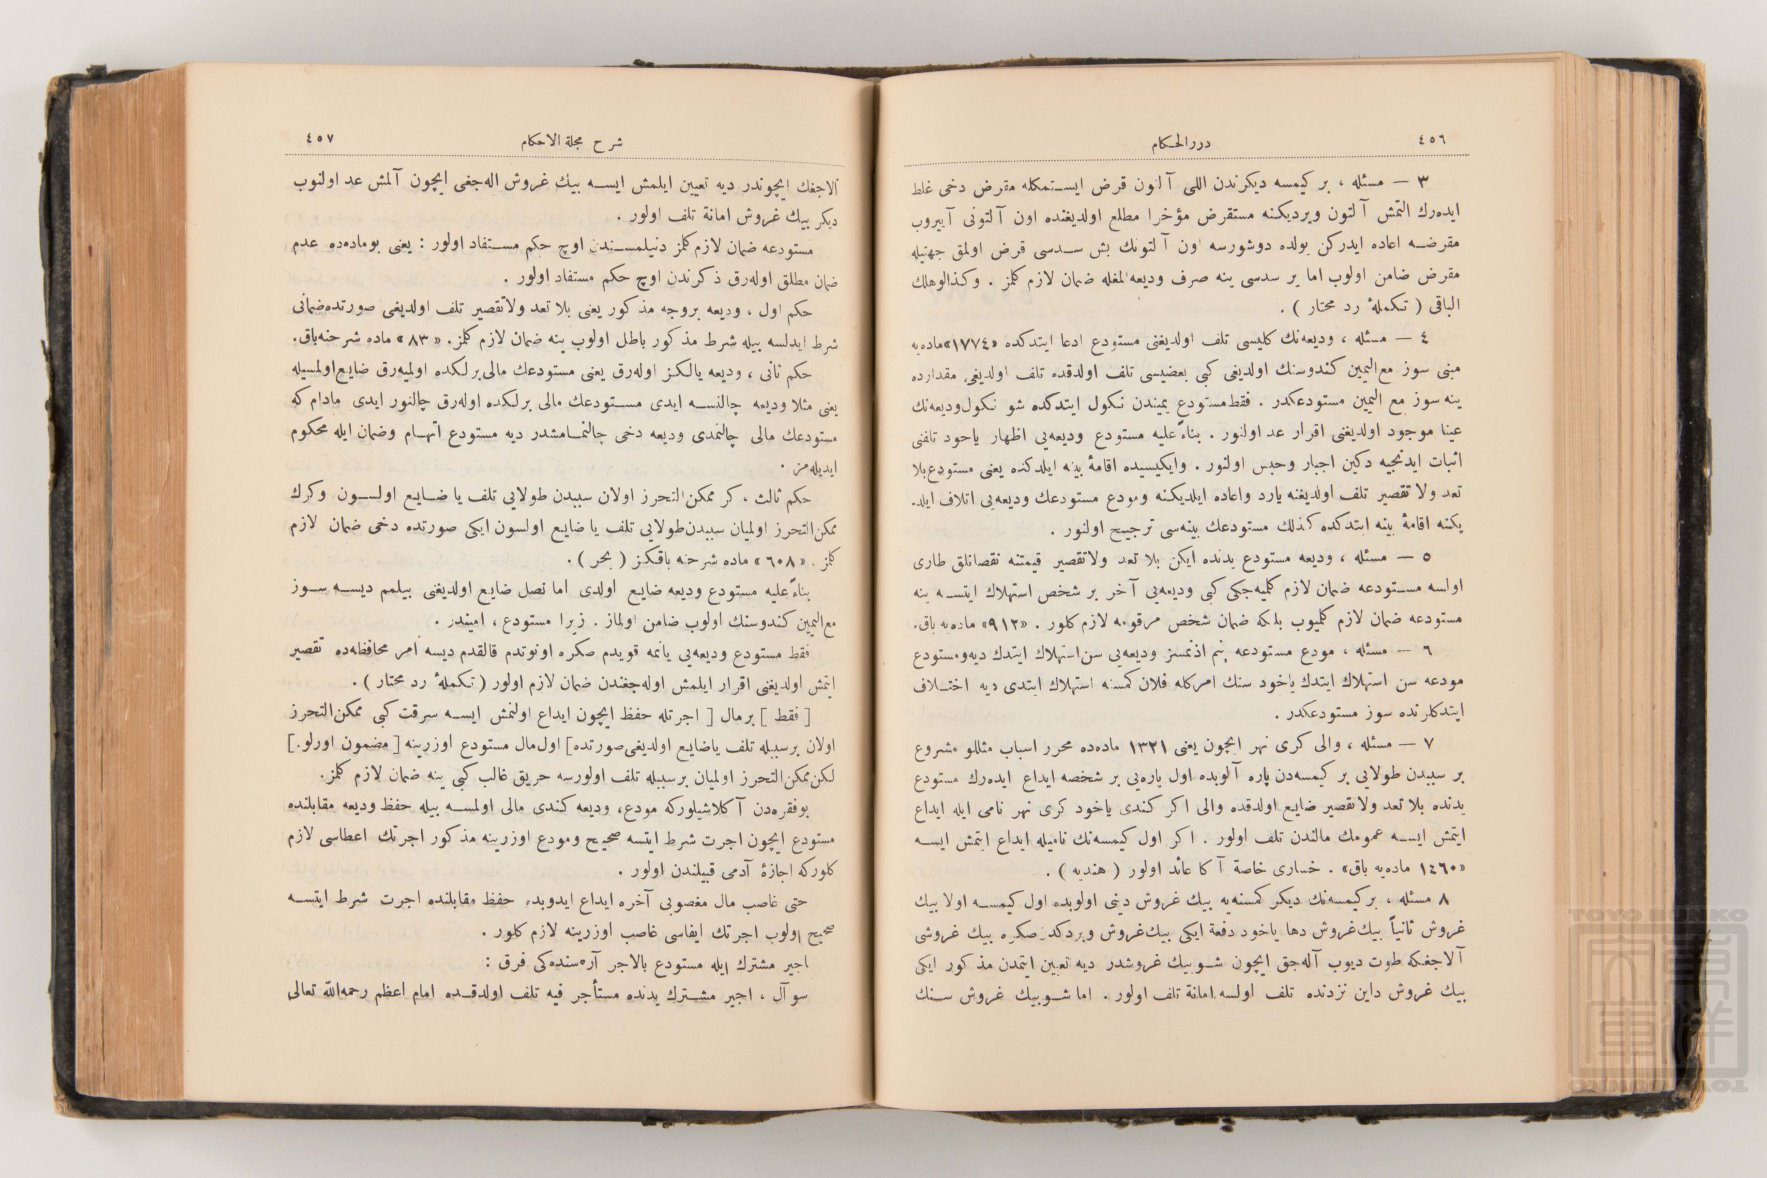 ٤٥٦
دررالحكام
٣ — مسئله ، بر كيمسه ديكرندن اللى آلتون قرض ايستمكله مقرض دخى غلط
ايده‌رك التمش آلتون ويرديكنه مستقرض مؤخرا مطلع اولديغنده اون آلتونى آييروب
مقرضه اعاده ايدركن يولده دوشورسه اون آلتونك بش سدسى قرض اولمق جهتيله
مقرض ضامن اولوب اما بر سدسى ينه صرف وديعه اولمغله ضمان لازم كلمز . وكذالوهلك
الباقى ( تكملهٔ رد محتار ) .
٤ — مسئله ، وديعه‌نك كليسى تلف اولديغنى مستودع ادعا ايتدكده «١٧٧٤» ماده‌يه
مبنى سوز مع اليمين كندوسنك اولديغى كبى بعضيسى تلف اولدقده تلف اولديغى مقدارده
ينه سوز مع اليمين مستودعكدر . فقط مستودع يميندن نكول ايتدكده شو نكول وديعه‌نك
عينا موجود اولديغنى اقرار عد اولنور . بناءً عليه مستودع وديعه‌يى اظهار ياخود تلفنى
اثبات ايدنجيه دكين اجبار وحبس اولنور . وايكيسيده اقامهٔ بينه ايلدكده يعنى مستودع بلا
تعد ولا تقصير تلف اولديغنه يارد واعاده ايلديكنه ومودع مستودعك وديعه‌يى اتلاف ايلد.
يكنه اقامهٔ بينه ايتدكده كذلك مستودعك بينه‌سى ترجيح اولنور .
٥ — مسئله ، وديعه مستودع يدنده ايكن بلا تعد ولاتقصير قيمتنه نقصانلق طارى
اولسه مستودعه ضمان لازم كلميه‌جكى كبى وديعه‌يى آخر بر شخص استهلاك ايتسه ينه
مستودعه ضمان لازم كلميوب بلكه ضمان شخص مرقومه لازم كلور . «٩١٢» ماده‌يه باق.
٦ — مسئله ، مودع مستودعه بنم اذنمسز وديعه‌يى سن استهلاك ايتدك ديه ومستودع
مودعه سن استهلاك ايتدك ياخود سنك امركله فلان كمسنه استهلاك ايتدى ديه اختلاف
ايتدكلرنده سوز مستودعكدر .
٧ — مسئله ، والى كرى نهر ايچون يعنى ١٣٢١ ماده‌ده محرر اسباب مثللو مشروع
بر سببدن طولايى بر كيمسه‌دن پاره آلوبده اول پاره‌يى بر شخصه ايداع ايده‌رك مستودع
يدنده بلا تعد ولاتقصير ضايع اولدقده والى اكر كندى ياخود كرى نهر نامى ايله ايداع
ايتمش ايسه عمومك مالندن تلف اولور . اكر اول كيمسه‌نك ناميله ايداع ايتمش ايسه
«١٤٦٠ ماده‌يه باق» . خسارى خاصة آكا عائد اولور ( هنديه ) .
٨ مسئله ، بر كيمسه‌نك ديكر كمسنه‌يه بيك غروش دينى اولوبده اول كيمسه اولا بيك
غروش ثانياً بيك غروش دها ياخود دفعة ايكى بيك غروش ويردكدن صكره بيك غروشى
آلاجغكه طوت ديوب آله‌جق ايچون شو بيك غروشدر ديه تعيين ايتمدن مذكور ايكى
بيك غروش داين نزدنده تلف اولسه امانة تلف اولور . اما شو بيك غروش سنك
شرح مجلة الاحكام
٤٥٧
آلاجغك ايچوندر ديه تعيين ايلمش ايسه بيك غروش اله‌جغى ايچون آلمش عد اولنوب
ديكر بيك غروش امانة تلف اولور .
مستودعه ضمان لازم كلمز دنيلمسندن اوچ حكم مستفاد اولور : يعنى بوماده‌ده عدم
ضمان مطلق اوله‌رق ذكرندن اوچ حكم مستفاد اولور .
حكم اول ، وديعه بروجه مذكور يعنى بلا تعد ولاتقصير تلف اولديغى صورتده ضمانى
شرط ايدلسه بيله شرط مذكور باطل اولوب ينه ضمان لازم كلمز. «٨٣» ماده شرحنه باق.
حكم ثانى ، وديعه يالكز اوله‌رق يعنى مستودعك مالى برلكده اولميه‌رق ضايع اولمسيله
يعنى مثلا وديعه چالنسه ايدى مستودعك مالى برلكده اوله‌رق چالنور ايدى مادام كه
مستودعك مالى چالنمدى وديعه دخى چالنمامشدر ديه مستودع اتهام وضمان ايله محكوم
ايديله‌مز .
حكم ثالث ، كر ممكن التحرز اولان سببدن طولايى تلف يا ضايع اولسون وكرك
ممكن التحرز اولميان سببدن طولايى تلف يا ضايع اولسون ايكى صورتده دخى ضمان لازم
كلمز . «٦٠٨» ماده شرحنه باقكز ( بحر ) .
بناءً عليه مستودع وديعه ضايع اولدى اما نصل ضايع اولديغنى بيلمم ديسه سوز
مع اليمين كندوسنك اولوب ضامن اولماز . زيرا مستودع ، اميندر .
فقط مستودع وديعه‌يى يانمه قويدم صكره اونوتدم قالقدم ديسه امر محافظه‌ده تقصير
ايتمش اولديغنى اقرار ايلمش اوله‌جغندن ضمان لازم اولور ( تكملهٔ رد محتار ) .
[ فقط ] بر مال [ اجرتله حفظ ايچون ايداع اولنمش ايسه سرقت كبى ممكن التحرز
اولان بر سببله تلف ياضايع اولديغى صورتده] اول مال مستودع اوزرينه [ مضمون اورلو.]
لكن ممكن التحرز اولميان بر سببله تلف اولورسه حريق غالب كبى ينه ضمان لازم كلمز.
بوفقره‌دن آكلاشيلوركه مودع، وديعه كندى مالى اولمسه بيله حفظ وديعه مقابلنده
مستودع ايچون اجرت شرط ايتسه صحيح ومودع اوزرينه مذكور اجرتك اعطاسى لازم
كلوركه اجازهٔ آدمى قبيلندن اولور .
حتى غاصب مال مغصوبى آخره ايداع ايدوبده حفظ مقابلنده اجرت شرط ايتسه
صحيح اولوب اجرتك ايفاسى غاصب اوزرينه لازم كلور .
اجير مشترك ايله مستودع بالاجر آره‌سنده‌كى فرق :
سوآل ، اجير مشترك يدنده مستأجر فيه تلف اولدقده امام اعظم رحمه الله تعالى
TOYO BUNKO